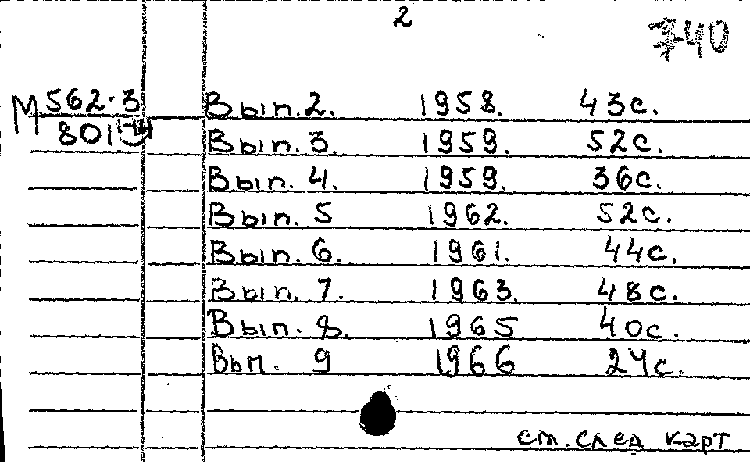 2
740
М 562-3
801
Вып. 2. 1958. 43с.
Вып. 3. 1959. 52с.
Вып. 4. 1959. 36с.
Вып. 5 1962. 52с.
Вып. 6. 1961. 44с.
Вып. 7. 1963. 48с.
Вып. 8. 1965 40с.
Вып. 9 1966 24с.
см. след карт